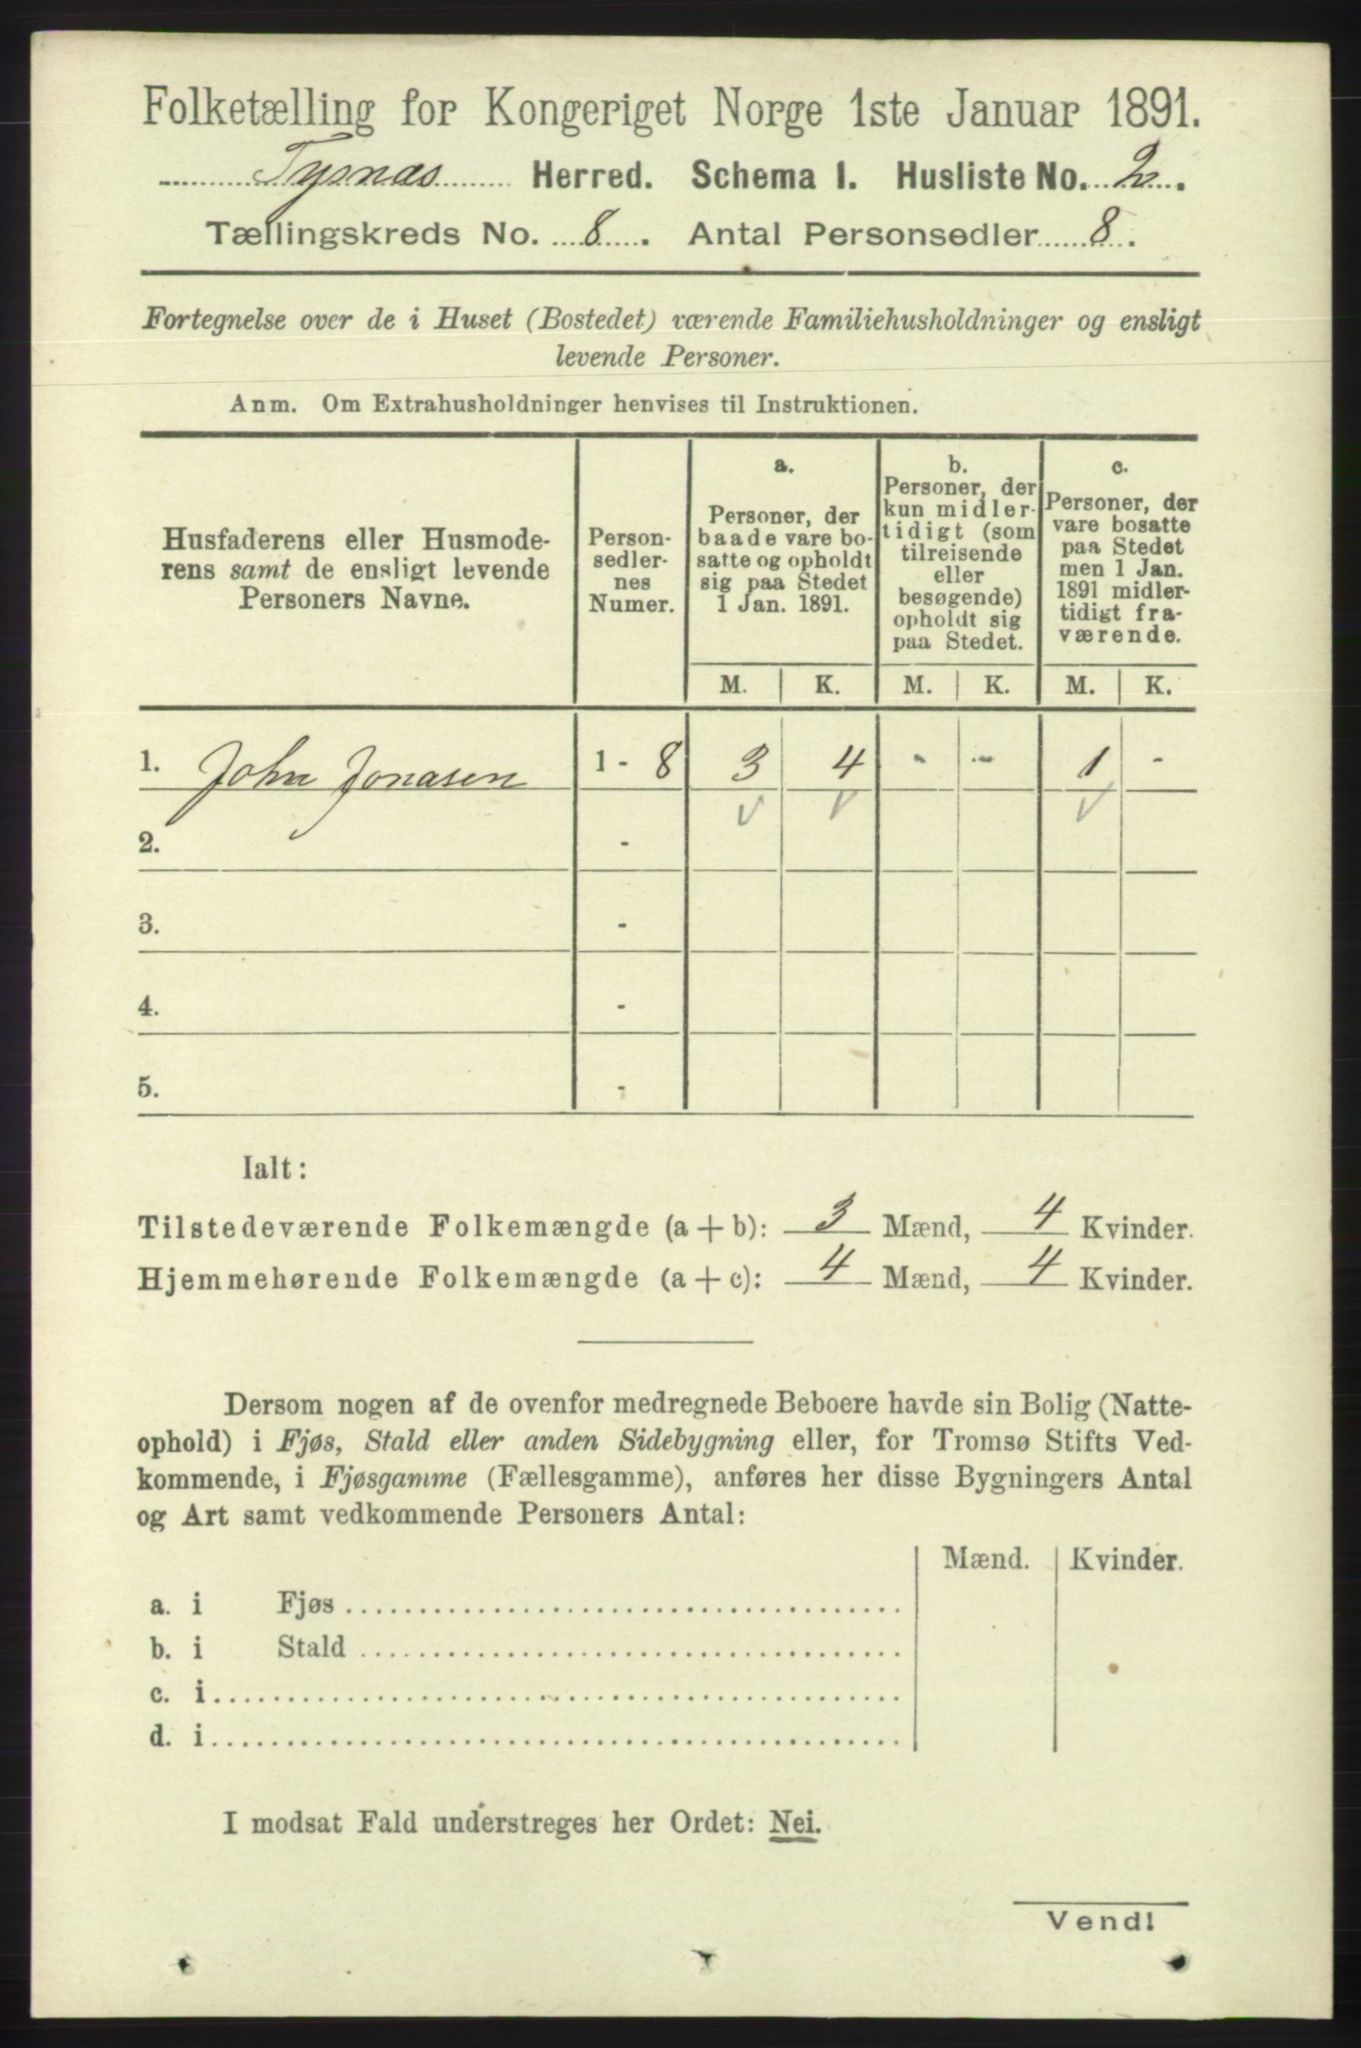 Folketælling for Kongeriget Norge 1ste Januar 1891.
Tysnæs Herred. Schema 1. Husliste No. 2.
Tællingskreds No. 8. Antal Personsedler 8.
Fortegnelse over de i Huset (Bostedet) værende Familiehusholdninger og ensligt
levende Personer.
Anm. Om Extrahusholdninger henvises til Instruktionen.
Husfaderens eller Husmode-
rens samt de ensligt levende
Personers Navne.
Person-
sedler-
nes
Numer.
a.
Personer, der
baade vare bo-
satte og opholdt
sig paa Stedet
1 Jan. 1891.
b.
Personer, der
kun midler-
tidigt (som
tilreisende
eller
besøgende)
opholdt sig
paa Stedet.
c.
Personer, der
vare bosatte
paa Stedet
men 1 Jan.
1891 midler-
tidigt fra-
værende.
M. K. M. K. M. K.
1. John Jonasen 1 - 8 3 4 - - 1 -
2. -
3. -
4. -
5. -
Ialt:
Tilstedeværende Folkemængde (a + b): 3 Mænd, 4 Kvinder.
Hjemmehørende Folkemængde (a + c): 4 Mænd, 4 Kvinder.
Dersom nogen af de ovenfor medregnede Beboere havde sin Bolig (Natte-
ophold) i Fjøs, Stald eller anden Sidebygning eller, for Tromsø Stifts Ved-
kommende, i Fjøsgamme (Fællesgamme), anføres her disse Bygningers Antal
og Art samt vedkommende Personers Antal:
Mænd. Kvinder.
a. i Fjøs
b. i Stald
c. i
d. i
I modsat Fald understreges her Ordet: Nei.
Vend!